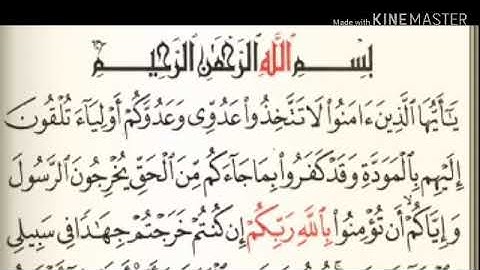 Made with KINEMASTER
بِسْمِ ٱللَّهِ ٱلرَّحْمَٰنِ ٱلرَّحِيمِ
يَـٰٓأَيُّهَا ٱلَّذِينَ ءَامَنُوا۟ لَا تَتَّخِذُوا۟ عَدُوِّى وَعَدُوَّكُمْ أَوْلِيَآءَ تُلْقُونَ
إِلَيْهِم بِٱلْمَوَدَّةِ وَقَدْ كَفَرُوا۟ بِمَا جَآءَكُم مِّنَ ٱلْحَقِّ يُخْرِجُونَ ٱلرَّسُولَ
وَإِيَّاكُمْ أَن تُؤْمِنُوا۟ بِٱللَّهِ رَبِّكُمْ إِن كُنتُمْ خَرَجْتُمْ جِهَـٰدًا فِى سَبِيلِى